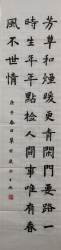 芳草和煙暖更青閑門要路一
時生年年點檢人間事唯有春
風不世情